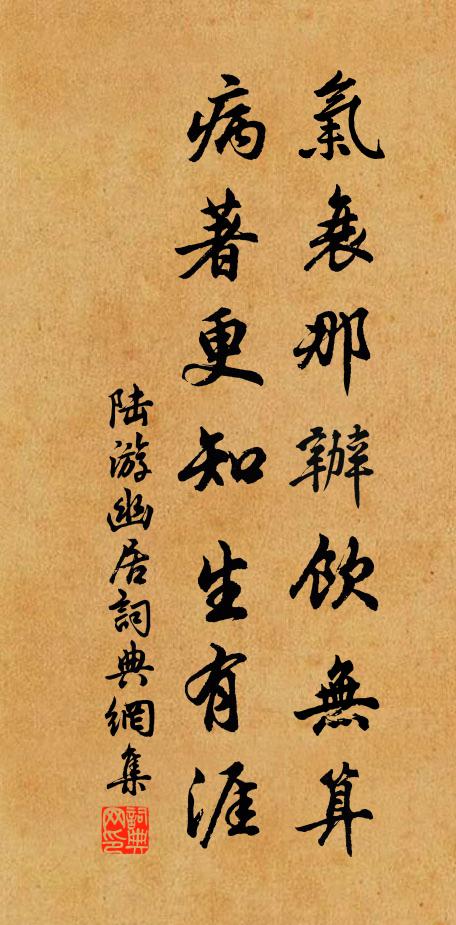 氣衰那辦飲無算
病著更知生有涯
陆游幽居詞典網集
詞典网印